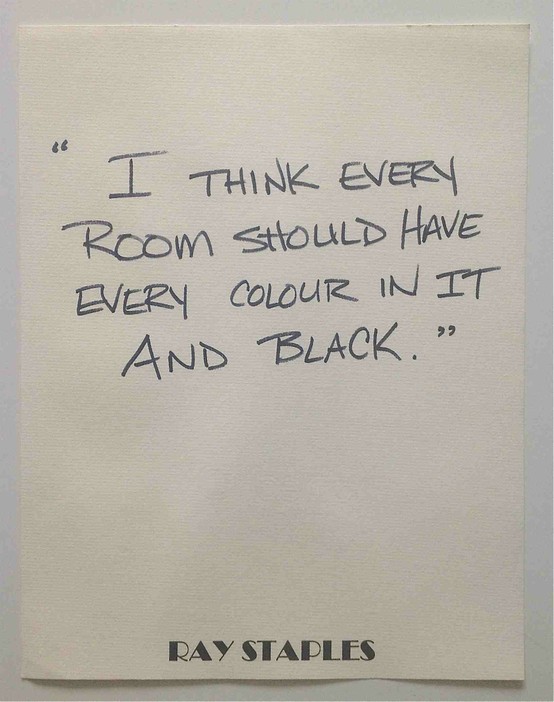 “ I THINK EVERY
ROOM SHOULD HAVE
EVERY COLOUR IN IT
AND BLACK. ”
RAY STAPLES